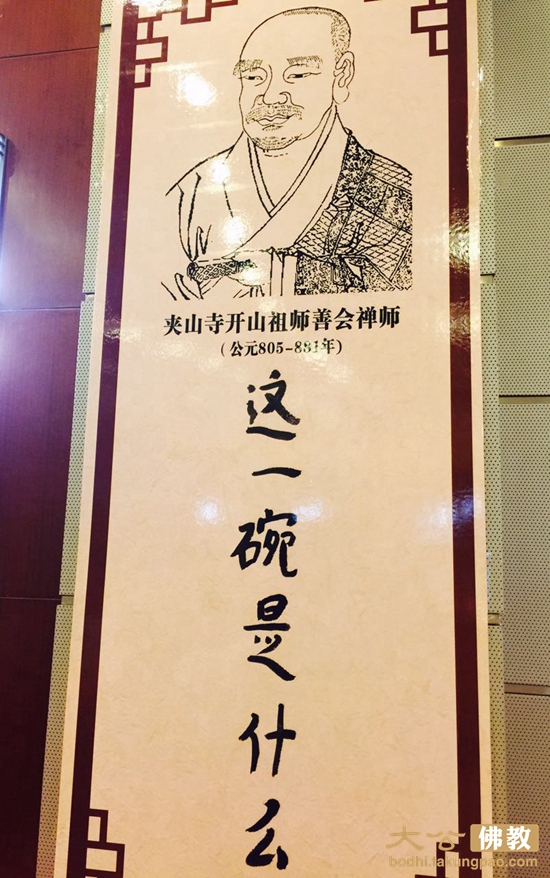 夹山寺开山祖师善会禅师
(公元805-881年)
这一碗是什么
大公 佛教
bodhi.takungpao.com